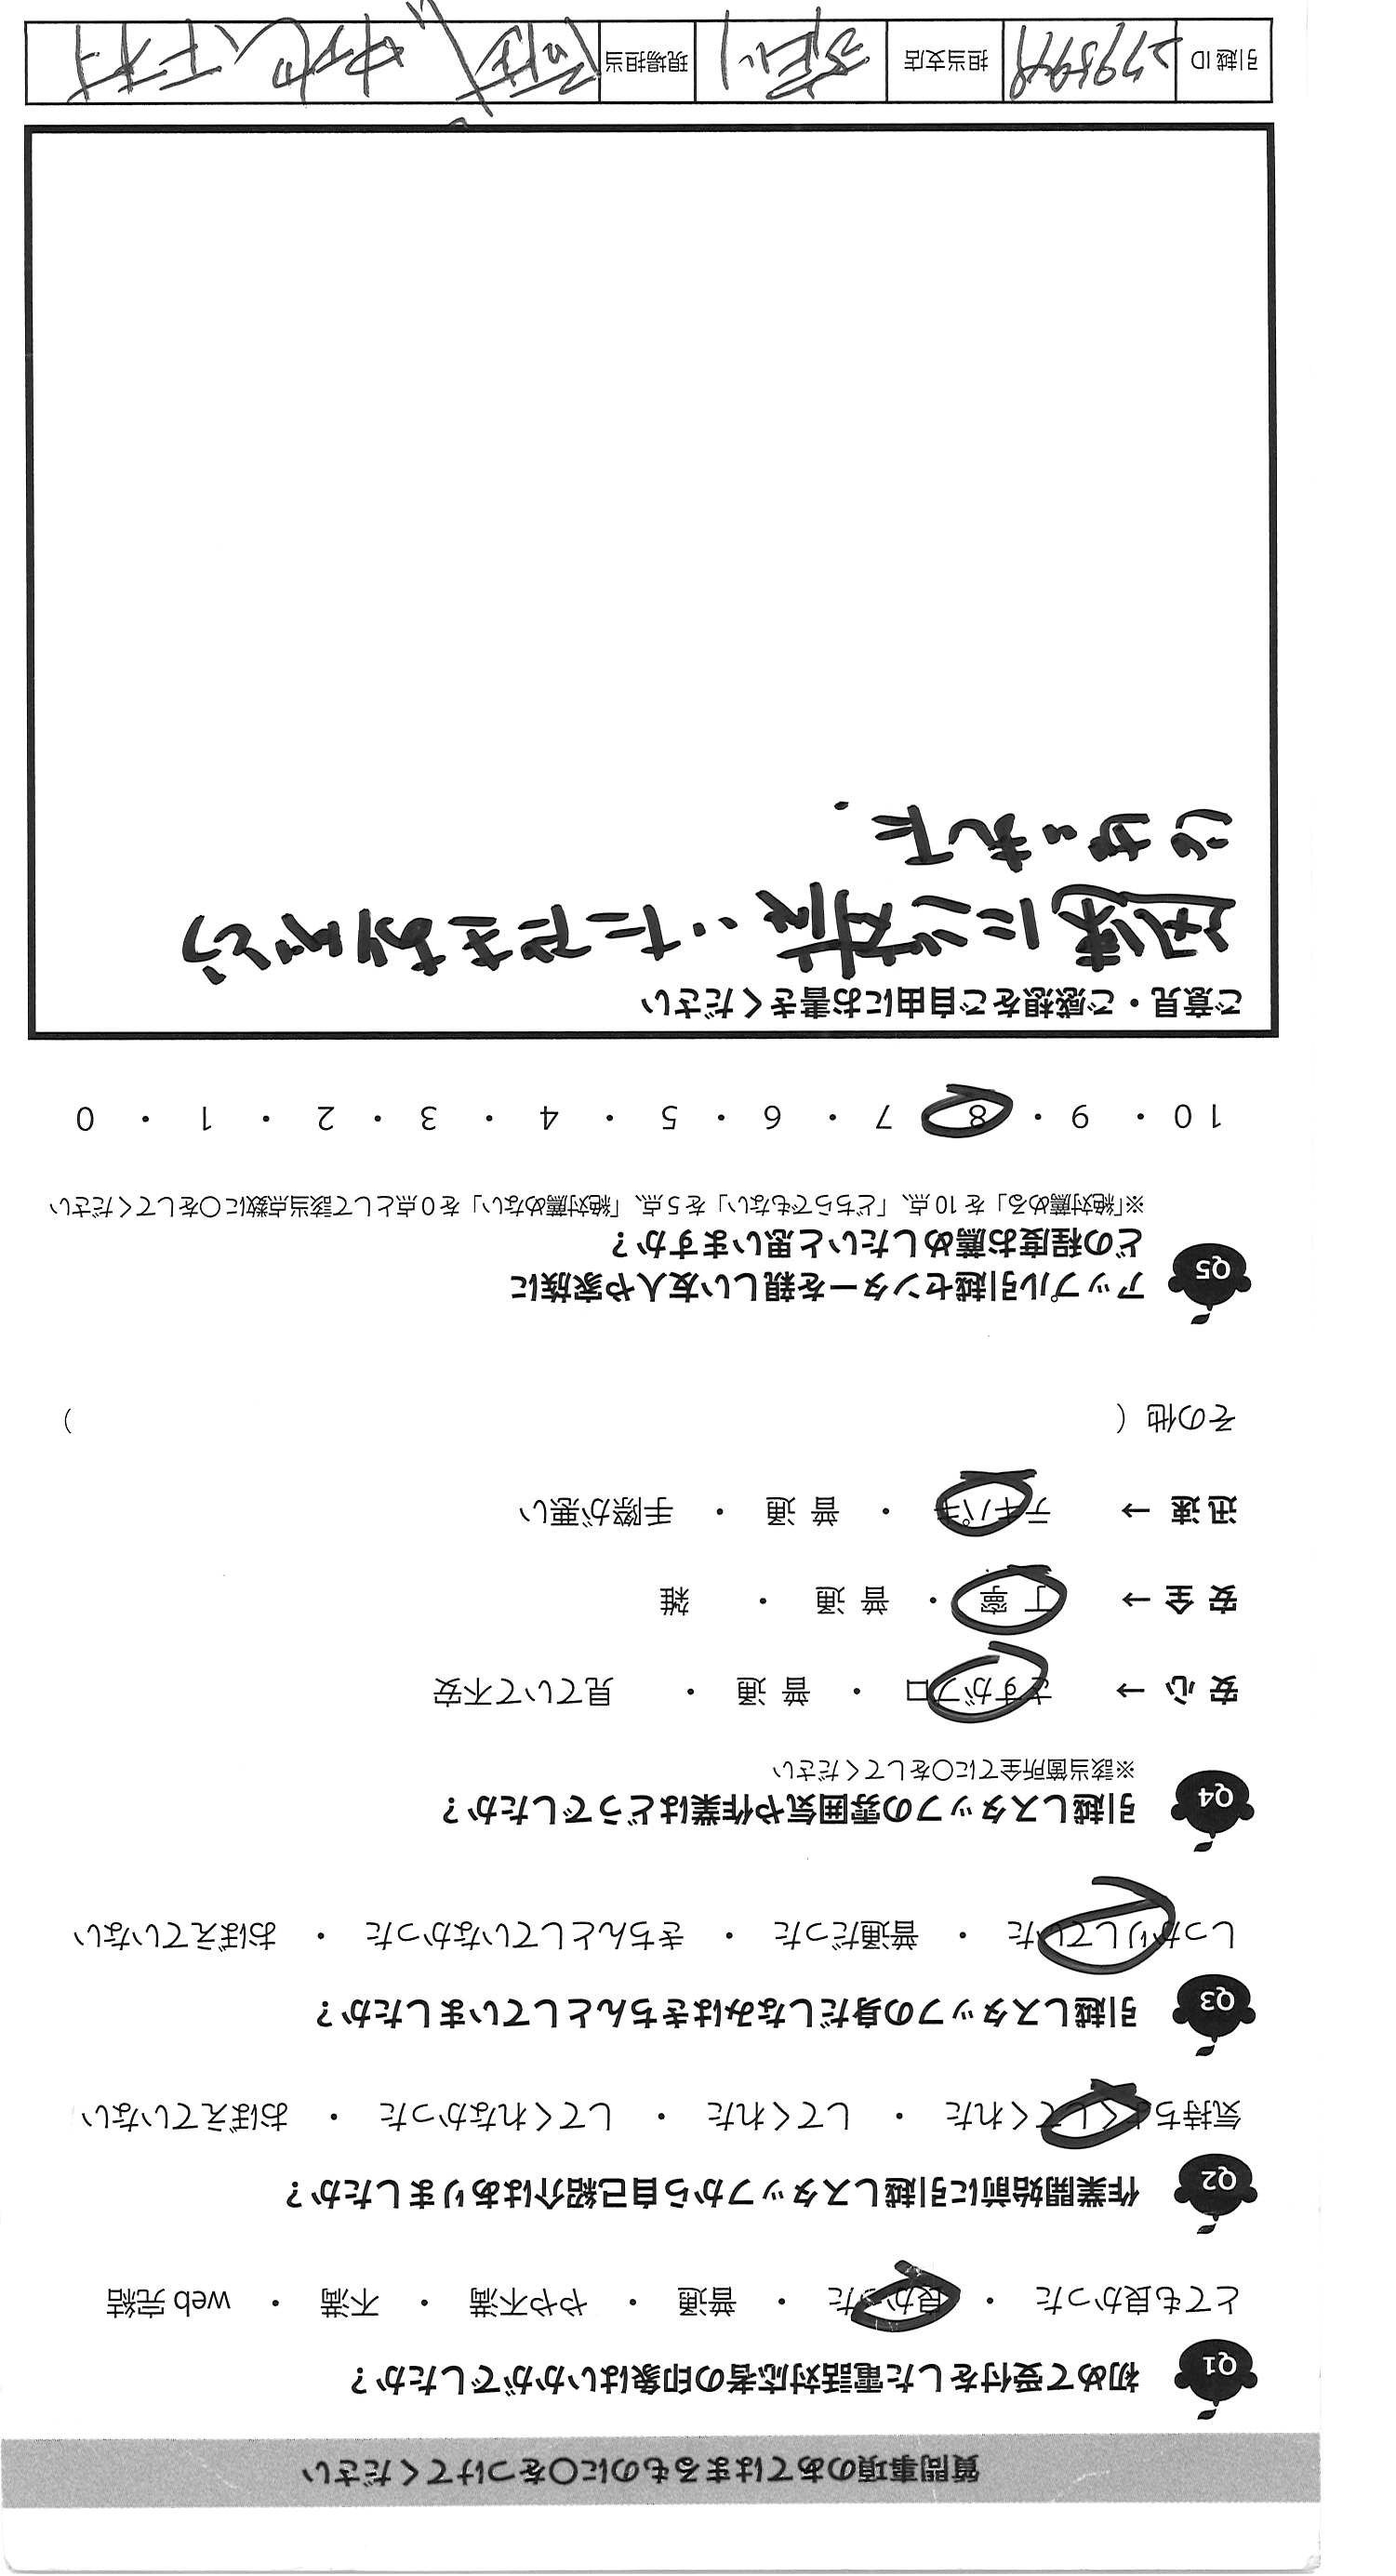 質問事項のあてはまるものに○をつけてください
Q1 初めて受付をした電話対応者の印象はいかがでしたか？
とても良かった ・ 良かった ・ 普通 ・ やや不満 ・ 不満 ・ web 完結
Q2 作業開始前に引越しスタッフから自己紹介はありましたか？
気持ちよくしてくれた ・ してくれた ・ してくれなかった ・ おぼえていない
Q3 引越しスタッフの身だしなみはきちんとしていましたか？
しっかりしていた ・ 普通だった ・ きちんとしていなかった ・ おぼえていない
Q4 引越しスタッフの雰囲気や作業はどうでしたか？
※該当箇所全てに○をしてください
安 心 → さすがプロ ・ 普 通 ・ 見ていて不安
安 全 → 丁 寧 ・ 普 通 ・ 雑
迅 速 → テキパキ ・ 普 通 ・ 手際が悪い
その他（ ）
Q5 アップル引越センターを親しい友人や家族に
どの程度お薦めしたいと思いますか？
※「絶対薦める」を 10 点、「どちらでもない」を 5 点、「絶対薦めない」を 0 点として該当点数に○をしてください
10 ・ 9 ・ 8 ・ 7 ・ 6 ・ 5 ・ 4 ・ 3 ・ 2 ・ 1 ・ 0
ご意見・ご感想をご自由にお書きください
迅速にご対応いただきありがとう
ございました.
引越 ID 担当支店 現場担当